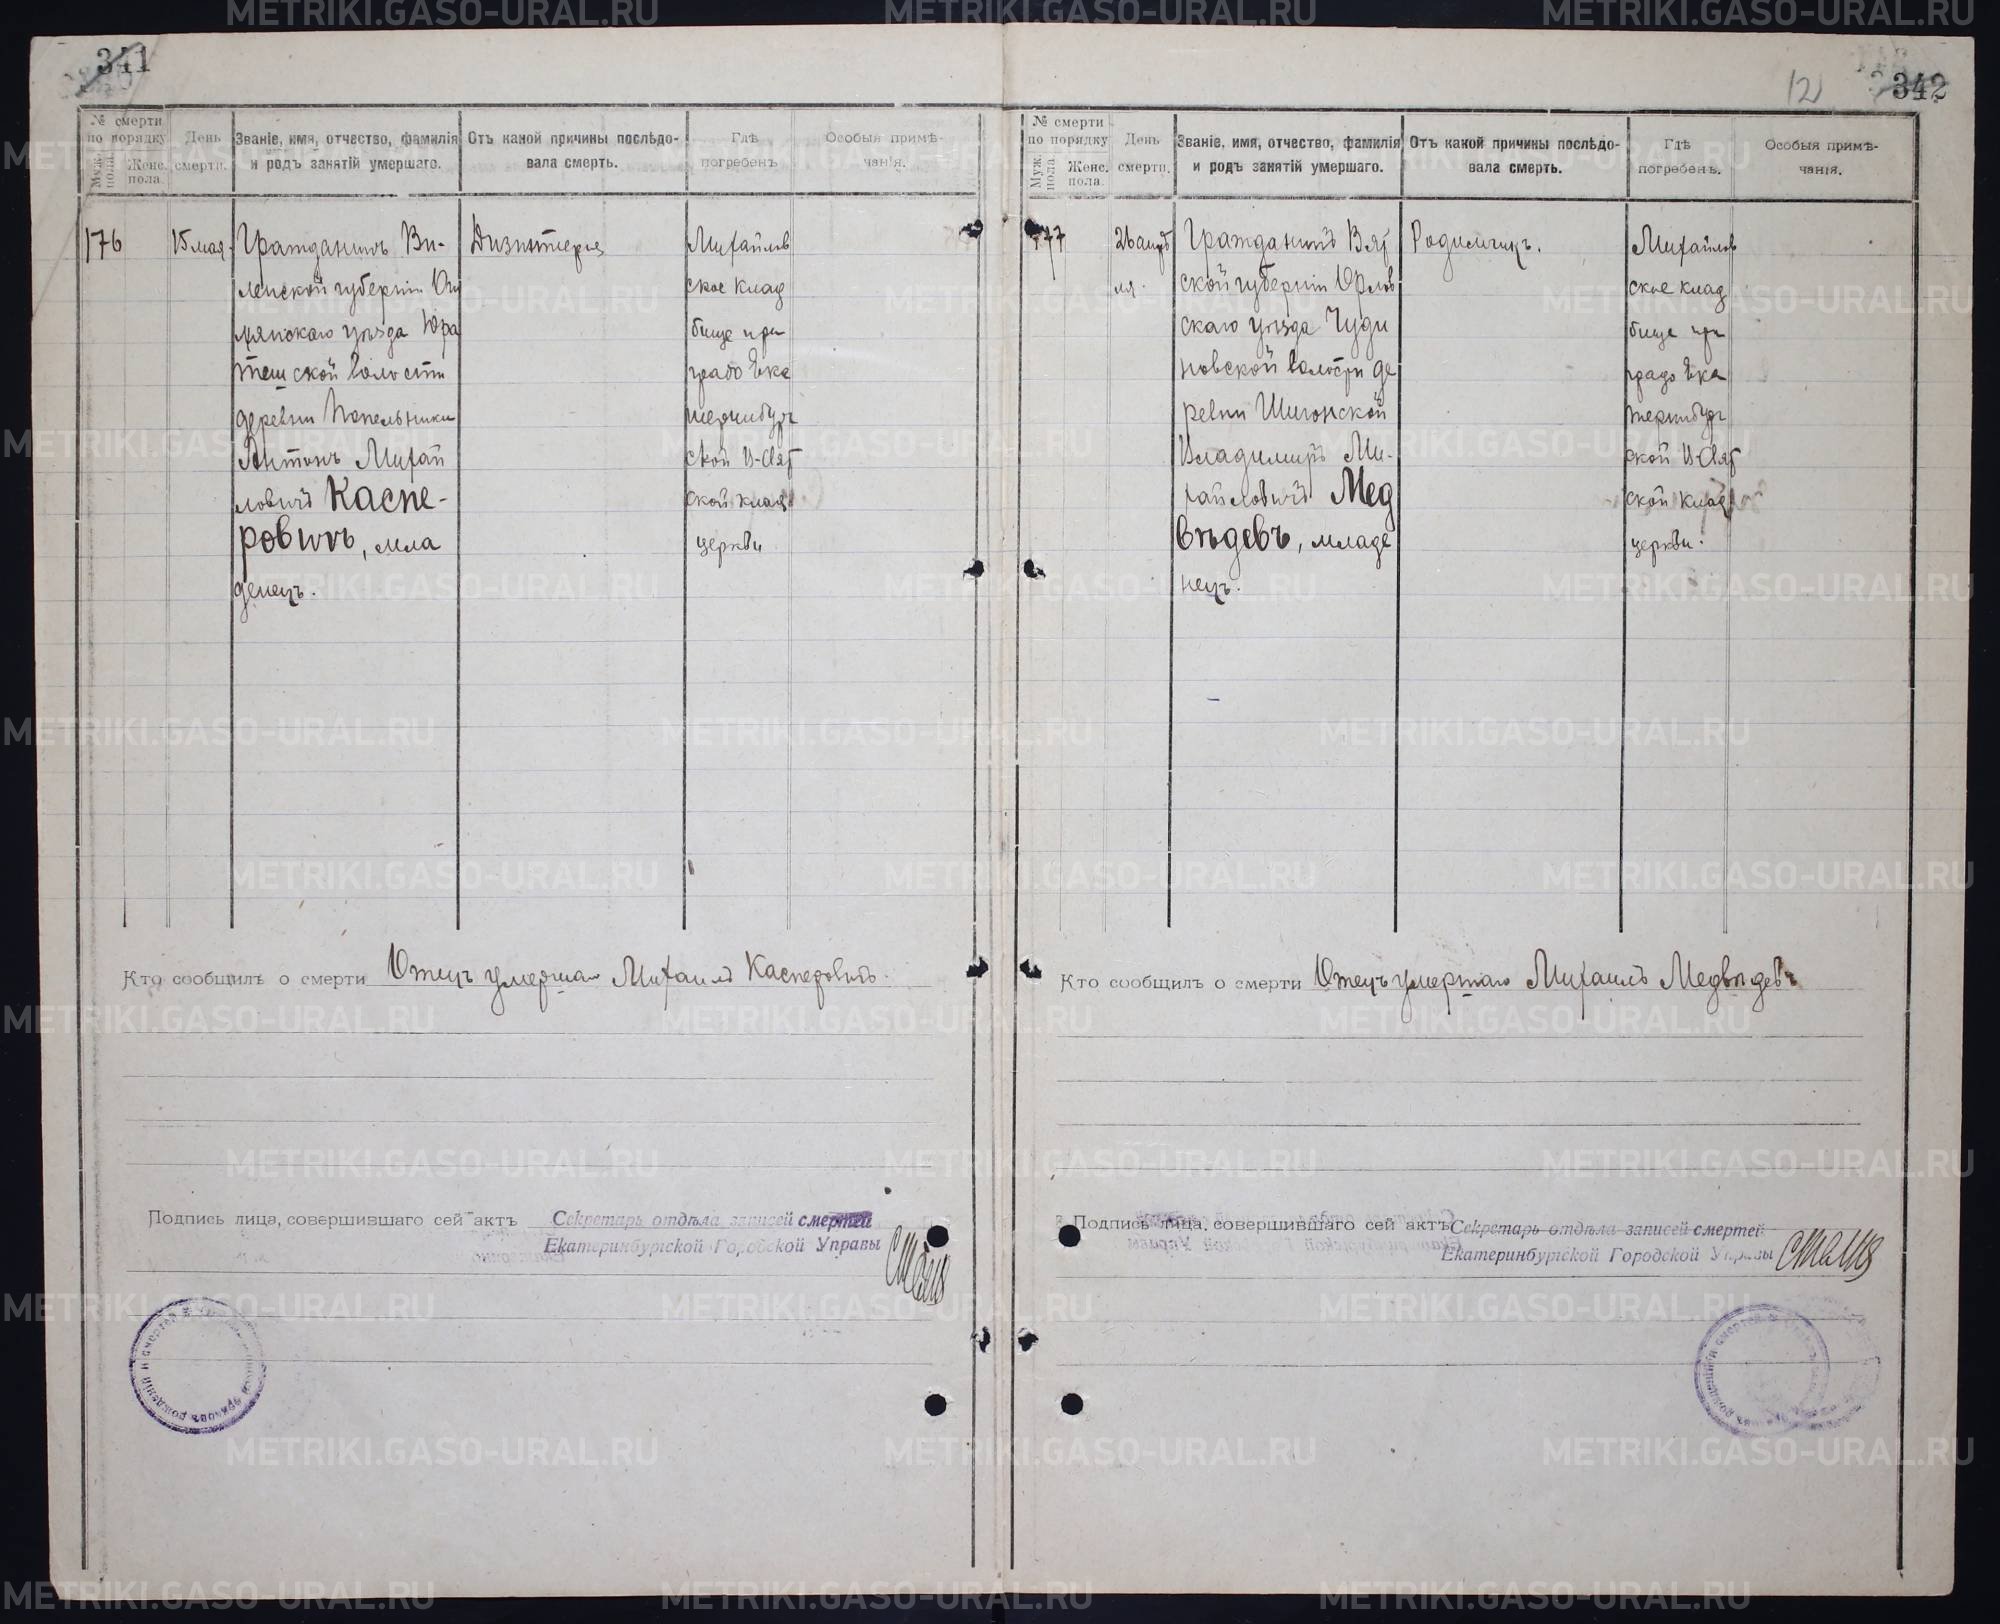 341
№ смерти по порядку
Муж. пола.
Женс. пола.
День смерти.
Званіе, имя, отчество, фамилія и родъ занятій умершаго.
Отъ какой причины послѣдовала смерть.
Гдѣ погребенъ.
Особыя примѣчанія.
176
15 мая.
Гражданинъ Ви-
ленской губерніи Ош
мянскаго уѣзда Юра
тешской волости
деревни Попельники
Антонъ Михай
ловичъ Каспе-
ровичъ, мла
денецъ.
Дизинтерія
Михайлов
ское клад
бище при
градо Ека
теринбург
ской
ской клад.
церкви
Кто сообщилъ о смерти Отецъ умершаго Михаилъ Касперовичъ.
Подпись лица, совершившаго сей актъ Секретарь отдѣла записей смертей
Екатеринбургской Городской Управы
12
342
№ смерти по порядку
Муж. пола
Женс. пола.
День смерти.
Званіе, имя, отчество, фамилія и родъ занятій умершаго.
Отъ какой причины послѣдовала смерть.
Гдѣ погребенъ.
Особыя примѣчанія.
177
26 апрѣ
ля.
Гражданинъ Вят
ской губерніи Орлов
скаго уѣзда Чуди
новской волости де
ревни Шигонской
Владимиръ Ми-
хайловичъ Мед
вѣдевъ, младе
нецъ.
Родимчикъ.
Михайлов
ское клад
бище при
градо Ека
теринбург
ской
ской клад
церкви.
Кто сообщилъ о смерти Отецъ умершаго Михаилъ Медвѣдевъ
Подпись лица, совершившаго сей актъ Секретарь отдѣла записей смертей
Екатеринбургской Городской Управы
METRIKI.GASO-URAL.RU